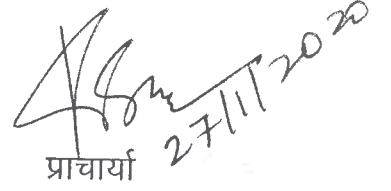 27/11/2020
प्राचार्या